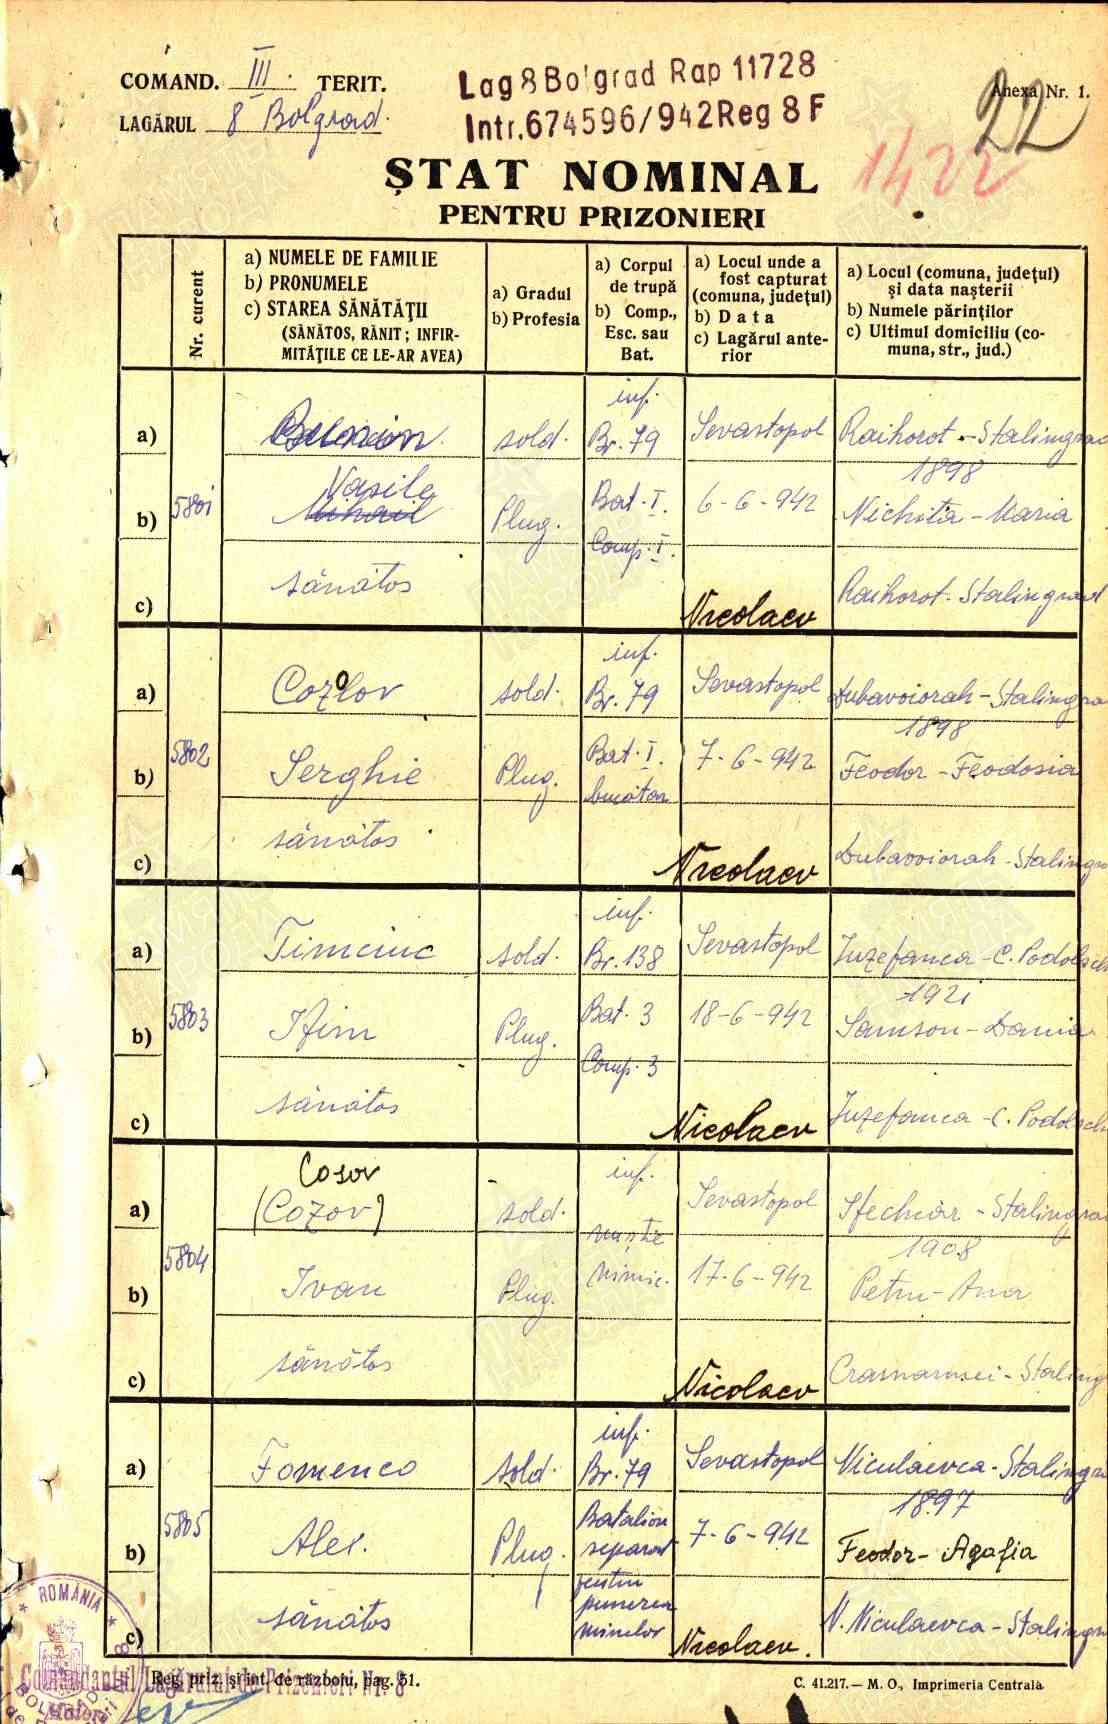 COMAND. III. TERIT.
LAGĂRUL 8 Bolgrad.
Lag 8 Bolgrad Rap 11728
Intr.674596/942 Reg 8 F
Anexa Nr. 1.
22
1422
ȘTAT NOMINAL
PENTRU PRIZONIERI
Nr. curent
a) NUMELE DE FAMILIE
b) PRONUMELE
c) STAREA SĂNĂTĂȚII
(SĂNĂTOS, RĂNIT; INFIR-
MITĂȚILE CE LE-AR AVEA)
a) Gradul
b) Profesia
a) Corpul
de trupă
b) Comp.,
Esc. sau
Bat.
a) Locul unde a
fost capturat
(comuna, județul)
b) Data
c) Lagărul ante-
rior
a) Locul (comuna, județul)
și data nașterii
b) Numele părinților
c) Ultimul domiciliu (co-
muna, str., jud.)
a) sold. inf. Br. 79 Sevastopol Raihorot - Stalingrad
1898
5801 b) Vasile Mihail Plug. Bat. I. Comp. I. 6-6-942 Nichita - Maria
c) sănătos Nicolaev Raihorot - Stalingrad
a) Cozlov sold. inf. Br. 79 Sevastopol Dubavoiorah - Stalingra
1898
5802 b) Serghie Plug. Bat. I. bucătar 7-6-942 Feodor - Feodosia
c) sănătos Nicolaev Dubavoiorah - Stalingra
a) Timciuc sold. inf. Br. 138 Sevastopol Iuzefanca - C. Podolschi
1921
5803 b) Ifim Plug. Bat. 3 Comp. 3 18-6-942 Samson - Dania
c) sănătos Nicolaev Iuzefanca - C. Podolschi
Cosov
a) (Cozov) sold. inf. Sevastopol - Stalingrad
1908
5804 b) Ivan Plug. nu știe nimic. 17-6-942 Petru - Ana
c) sănătos Nicolaev - Stalingr
a) Fomenco sold. inf. Br. 79 Sevastopol Niculaevca - Stalingra
1897
5805 b) Alex. Plug. Batalion separat pentru punerea minelor 7-6-942 Feodor - Agafia
c) sănătos Nicolaev. N. Niculaevca - Stalingra
ROMÂNIA
Comandantul Lagărului de Prizonieri Nr. 8
Reg. priz. și int. de războiu, pag. 51.
C. 41.217. — M. O., Imprimeria Centrală.